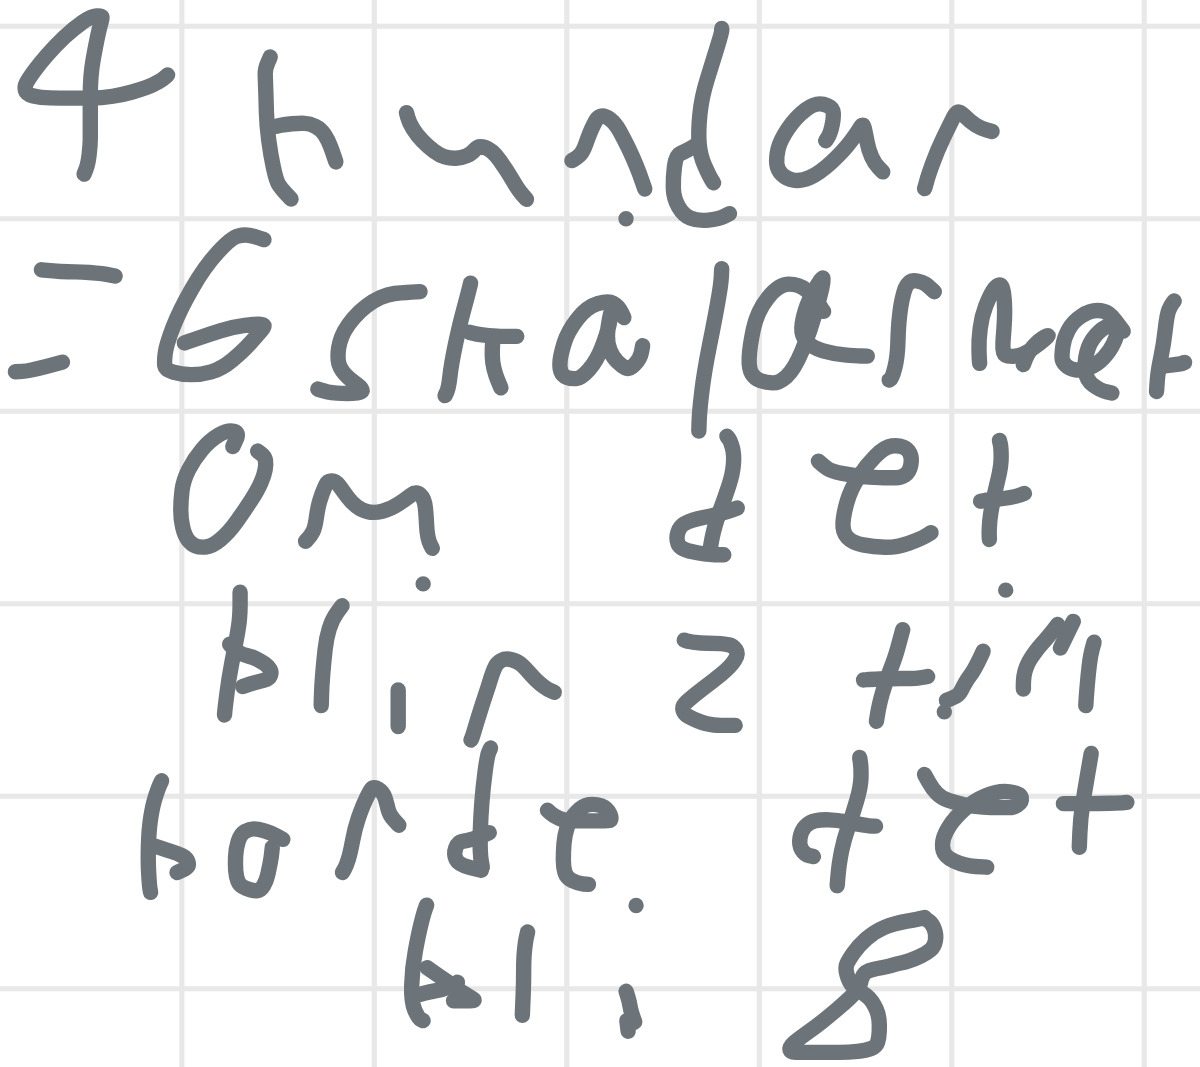 4 hundar
= 6 skalarmet
om det
blir 2 till
borde det
bli 8